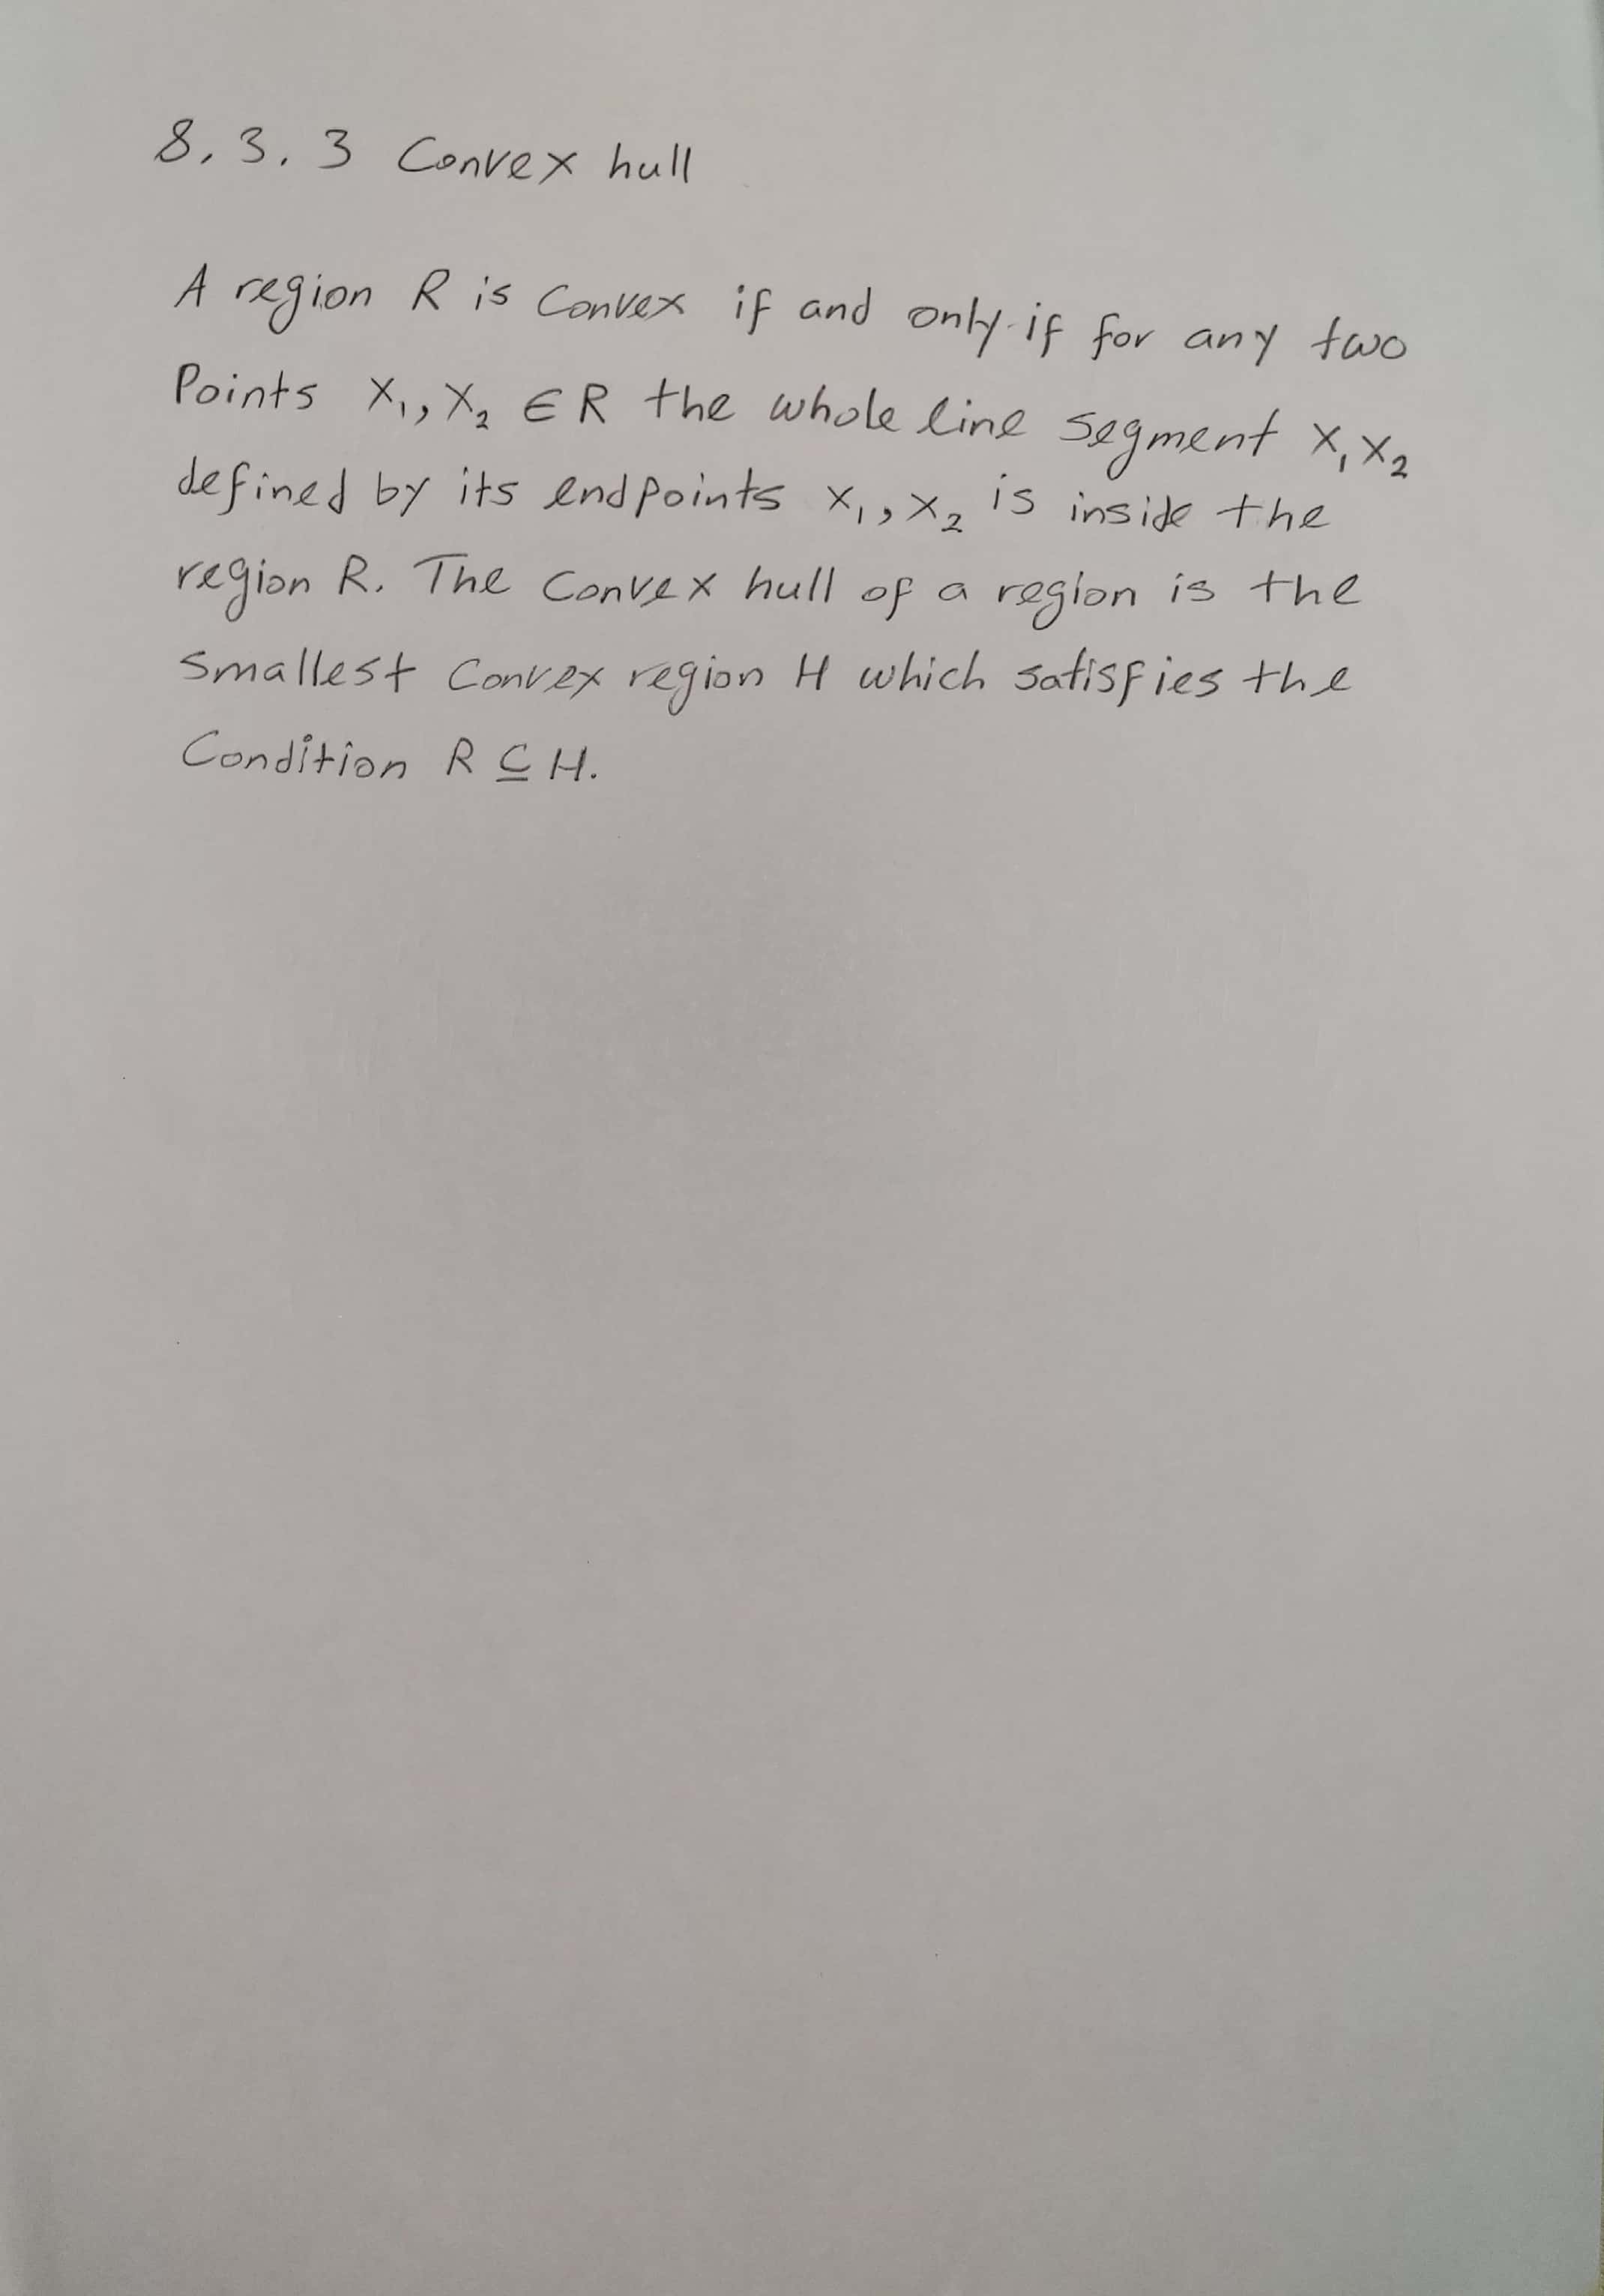 8.3.3 Convex hull
A region R is Convex if and only if for any two
Points X₁, X₂ ∈ R the whole line segment X₁X₂
defined by its endpoints X₁, X₂ is inside the
region R. The Convex hull of a region is the
Smallest Convex region H which satisfies the
Condition R ⊆ H.